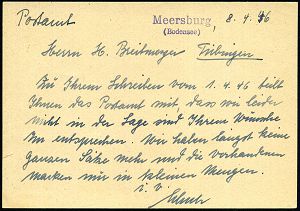 Postamt
Meersburg, 8. 4. 46
(Bodensee)
Herrn H. Breitmoser Tübingen
Zu Ihrem Schreiben vom 1. 4. 46 teilt
Ihnen das Postamt mit, dass wir leider
nicht in der Lage sind Ihrem Wunsche
zu entsprechen. Wir haben längst keine
ganzen Sätze mehr und die vorhandenen
Marken nur in kleinen Mengen.
i. V.